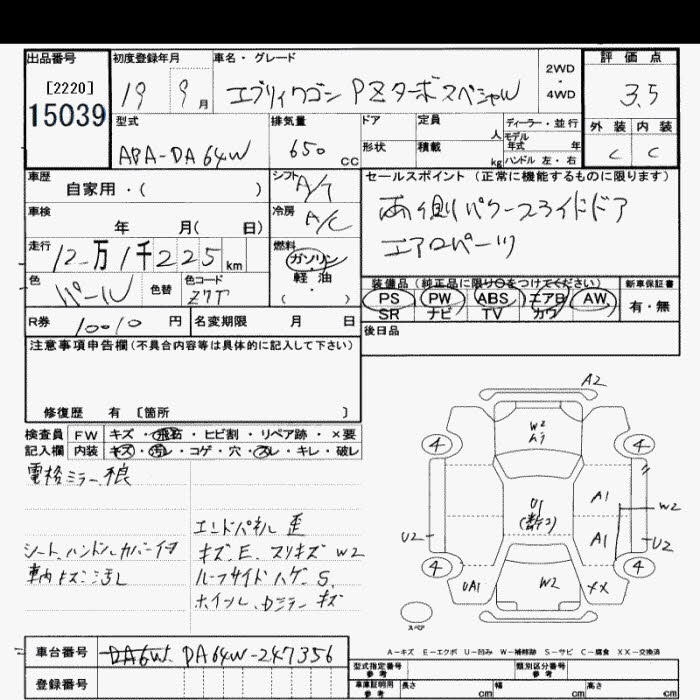 出品番号
[2220]
15039
初度登録年月
19 9 月
車名・グレード
エブリィワゴン PZターボスペシャル
2WD
・
4WD
評価点
3.5
外装 内装
C C
型式
ABA-DA64W
排気量
650 cc
ドア
形状
定員 人
積載 kg
ディーラー・並行
モデル
年式 年
ハンドル 左・右
車歴
自家用・( )
シフト
A/T
車検
年 月( 日)
冷房
A/C
走行
12万1千225 km
燃料
ガソリン
・
軽油
( )
色
パール
色替
色コード
Z7T
R券
10010 円
名変期限 月 日
セールスポイント (正常に機能するものに限ります)
両側パワースライドドア
エアロパーツ
装備品 (純正品に限り○をつけてください)
PS PW ABS エアB AW
SR ナビ TV カワ
新車保証書
有・無
後日品
注意事項申告欄(不具合内容等は具体的に記入して下さい)
修復歴 有 〔箇所 〕
検査員 FW キズ・飛石・ヒビ割・リペア跡・×要
記入欄 内装 キズ・汚レ・コゲ・穴・スレ・キレ・破レ
電格ミラー不良
シート、ハンドルカバー付
車内キズ汚レ
エンドパネル歪
キズ、E、スリキズ W2
ルーフサイドハゲ、S、
ホイール、Dミラーキズ
A2
W2
A1
4 4
U1
A1
W2
A1
U2
U2
4 4
UA1
W2
XX
スペア
A-キズ E-エクボ U-凹み W-補修跡 S-サビ C-腐食 XX-交換済
車台番号
DA6W. DA64W-247356
登録番号
型式指定番号
参考
類別区分番号
参考
車庫証明用
参考
長さ cm
幅 cm
高さ cm